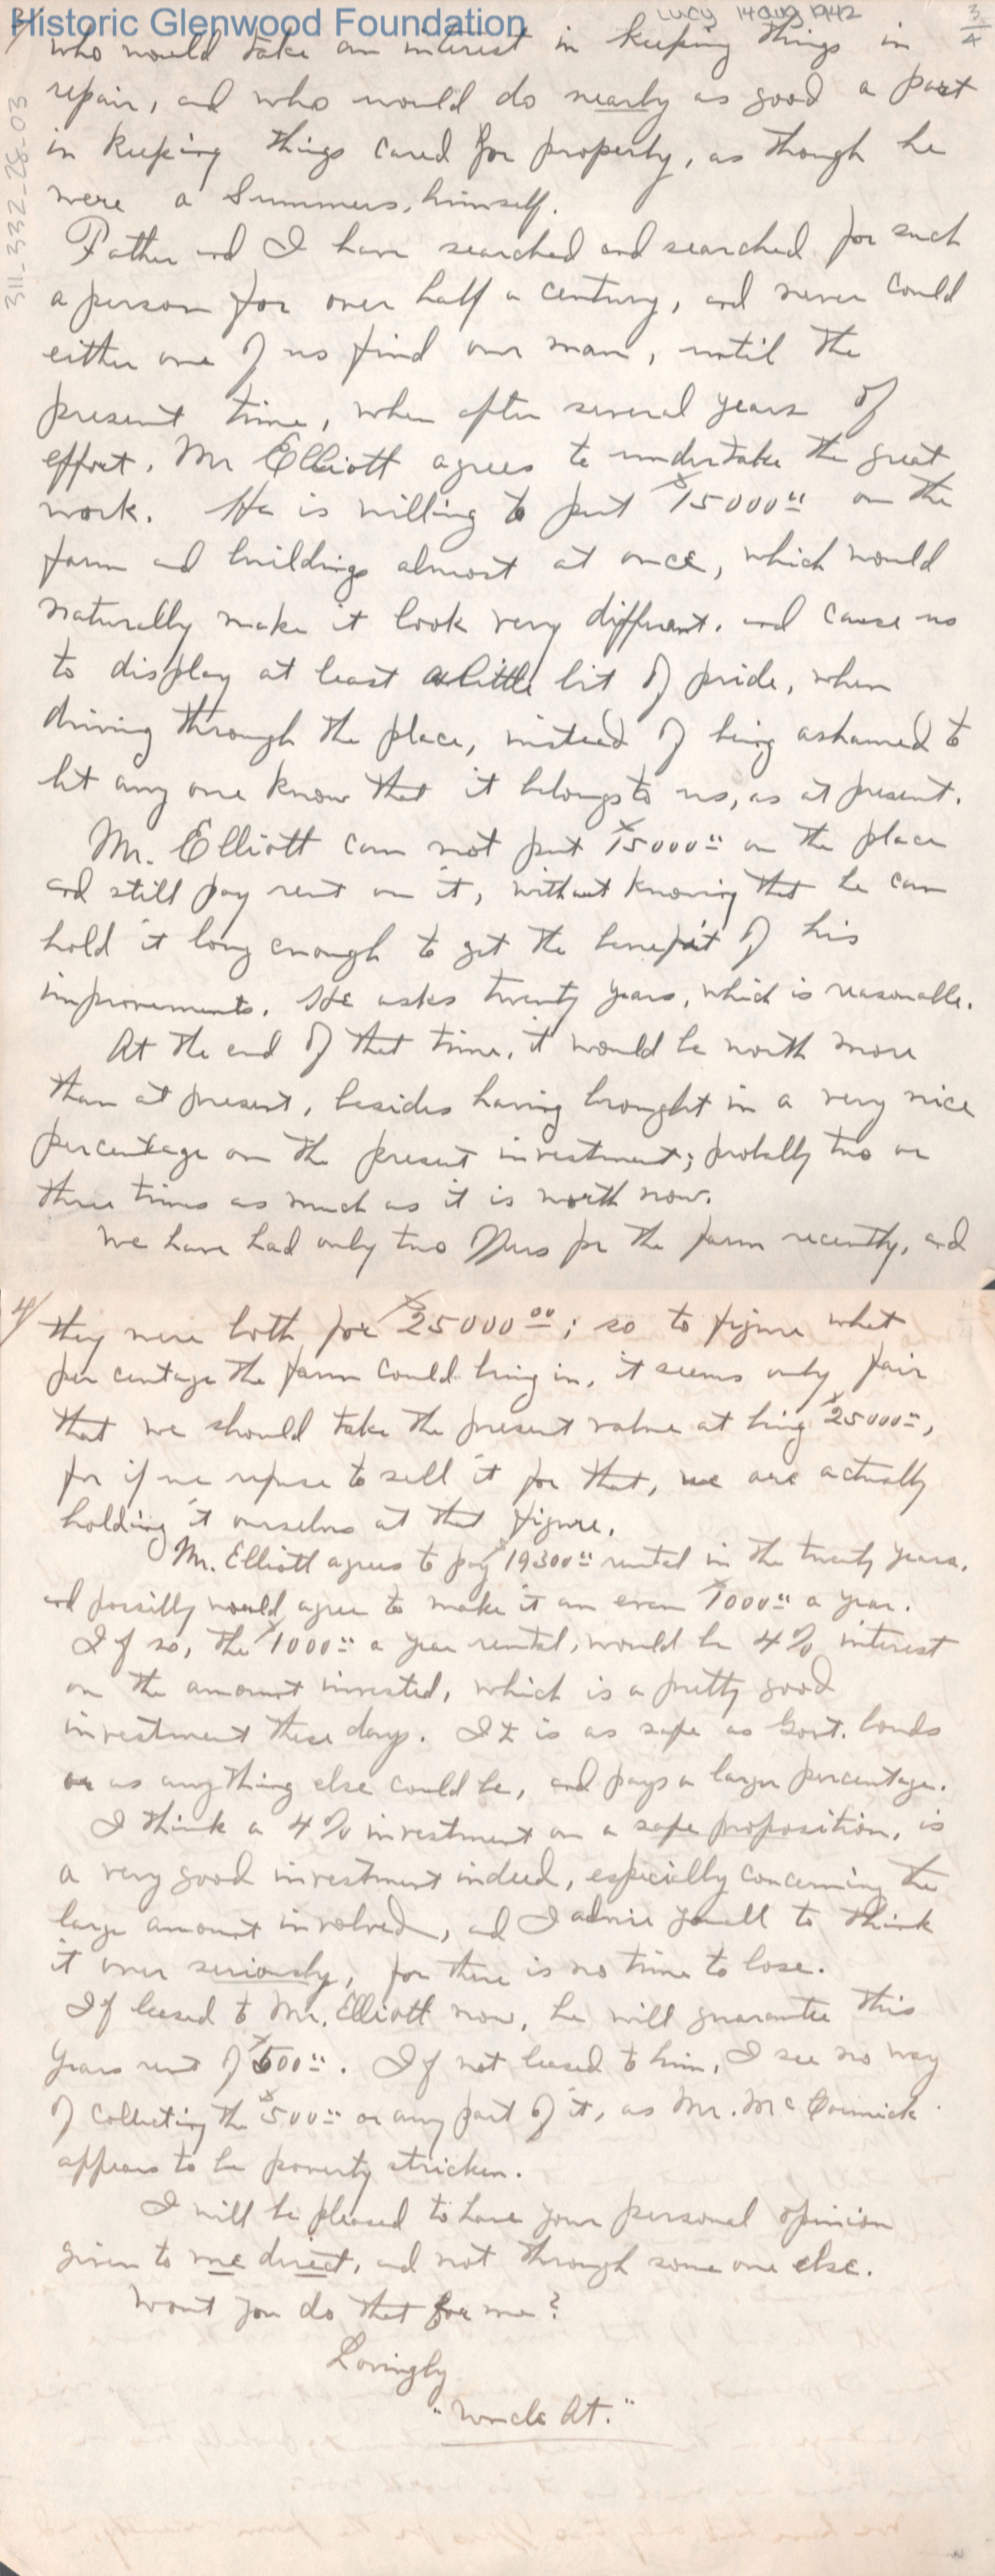 Historic Glenwood Foundation
Lucy 14 Aug 1942
3/4
311_332_28_03
3/
who would take an interest in keeping things in
repair, and who would do nearly as good a part
in keeping things cared for property, as though he
were a Summers, himself.
Father and I have searched and searched for such
a person for over half a century, and never could
either one of us find our man, until the
present time, when after several years of
effort, Mr Elliott agrees to undertake the great
work. He is willing to put $15000.00 on the
farm and buildings almost at once, which would
naturally make it look very different, and cause us
to display at least a little bit of pride, when
driving through the place, instead of being ashamed to
let any one know that it belongs to us, as at present.
Mr. Elliott can not put $15000.00 on the place
and still pay rent on it, without knowing that he can
hold it long enough to get the benefit of his
improvements. He asks twenty years, which is reasonable.
At the end of that time, it would be worth more
than at present, besides having brought in a very nice
percentage on the present investment; probably two or
three times as much as it is worth now.
We have had only two offers for the farm recently, and
4/
they were both for $25000.00; so to figure what
per centage the farm could bring in, it seems only fair
that we should take the present value at being $25000.00,
for if we refuse to sell it for that, we are actually
holding it ourselves at that figure.
Mr. Elliott agrees to pay $19300.00 rental in the twenty years,
and possibly would agree to make it an even $1000.00 a year.
If so, the $1000.00 a year rental, would be 4% interest
on the amount invested, which is a pretty good
investment these days. It is as safe as Govt. bonds
or as anything else could be, and pays a larger percentage.
I think a 4% investment on a safe proposition, is
a very good investment indeed, especially concerning the
large amount involved, and I advise you all to think
it over seriously, for there is no time to lose.
If leased to Mr. Elliott now, he will guarantee this
years rent of $500.00. If not leased to him, I see no way
of collecting the $500.00 or any part of it, as Mr. McCormick
appears to be poverty stricken.
I will be pleased to have your personal opinion
given to me direct, and not through some one else.
Wont you do that for me?
Lovingly
"Uncle At."